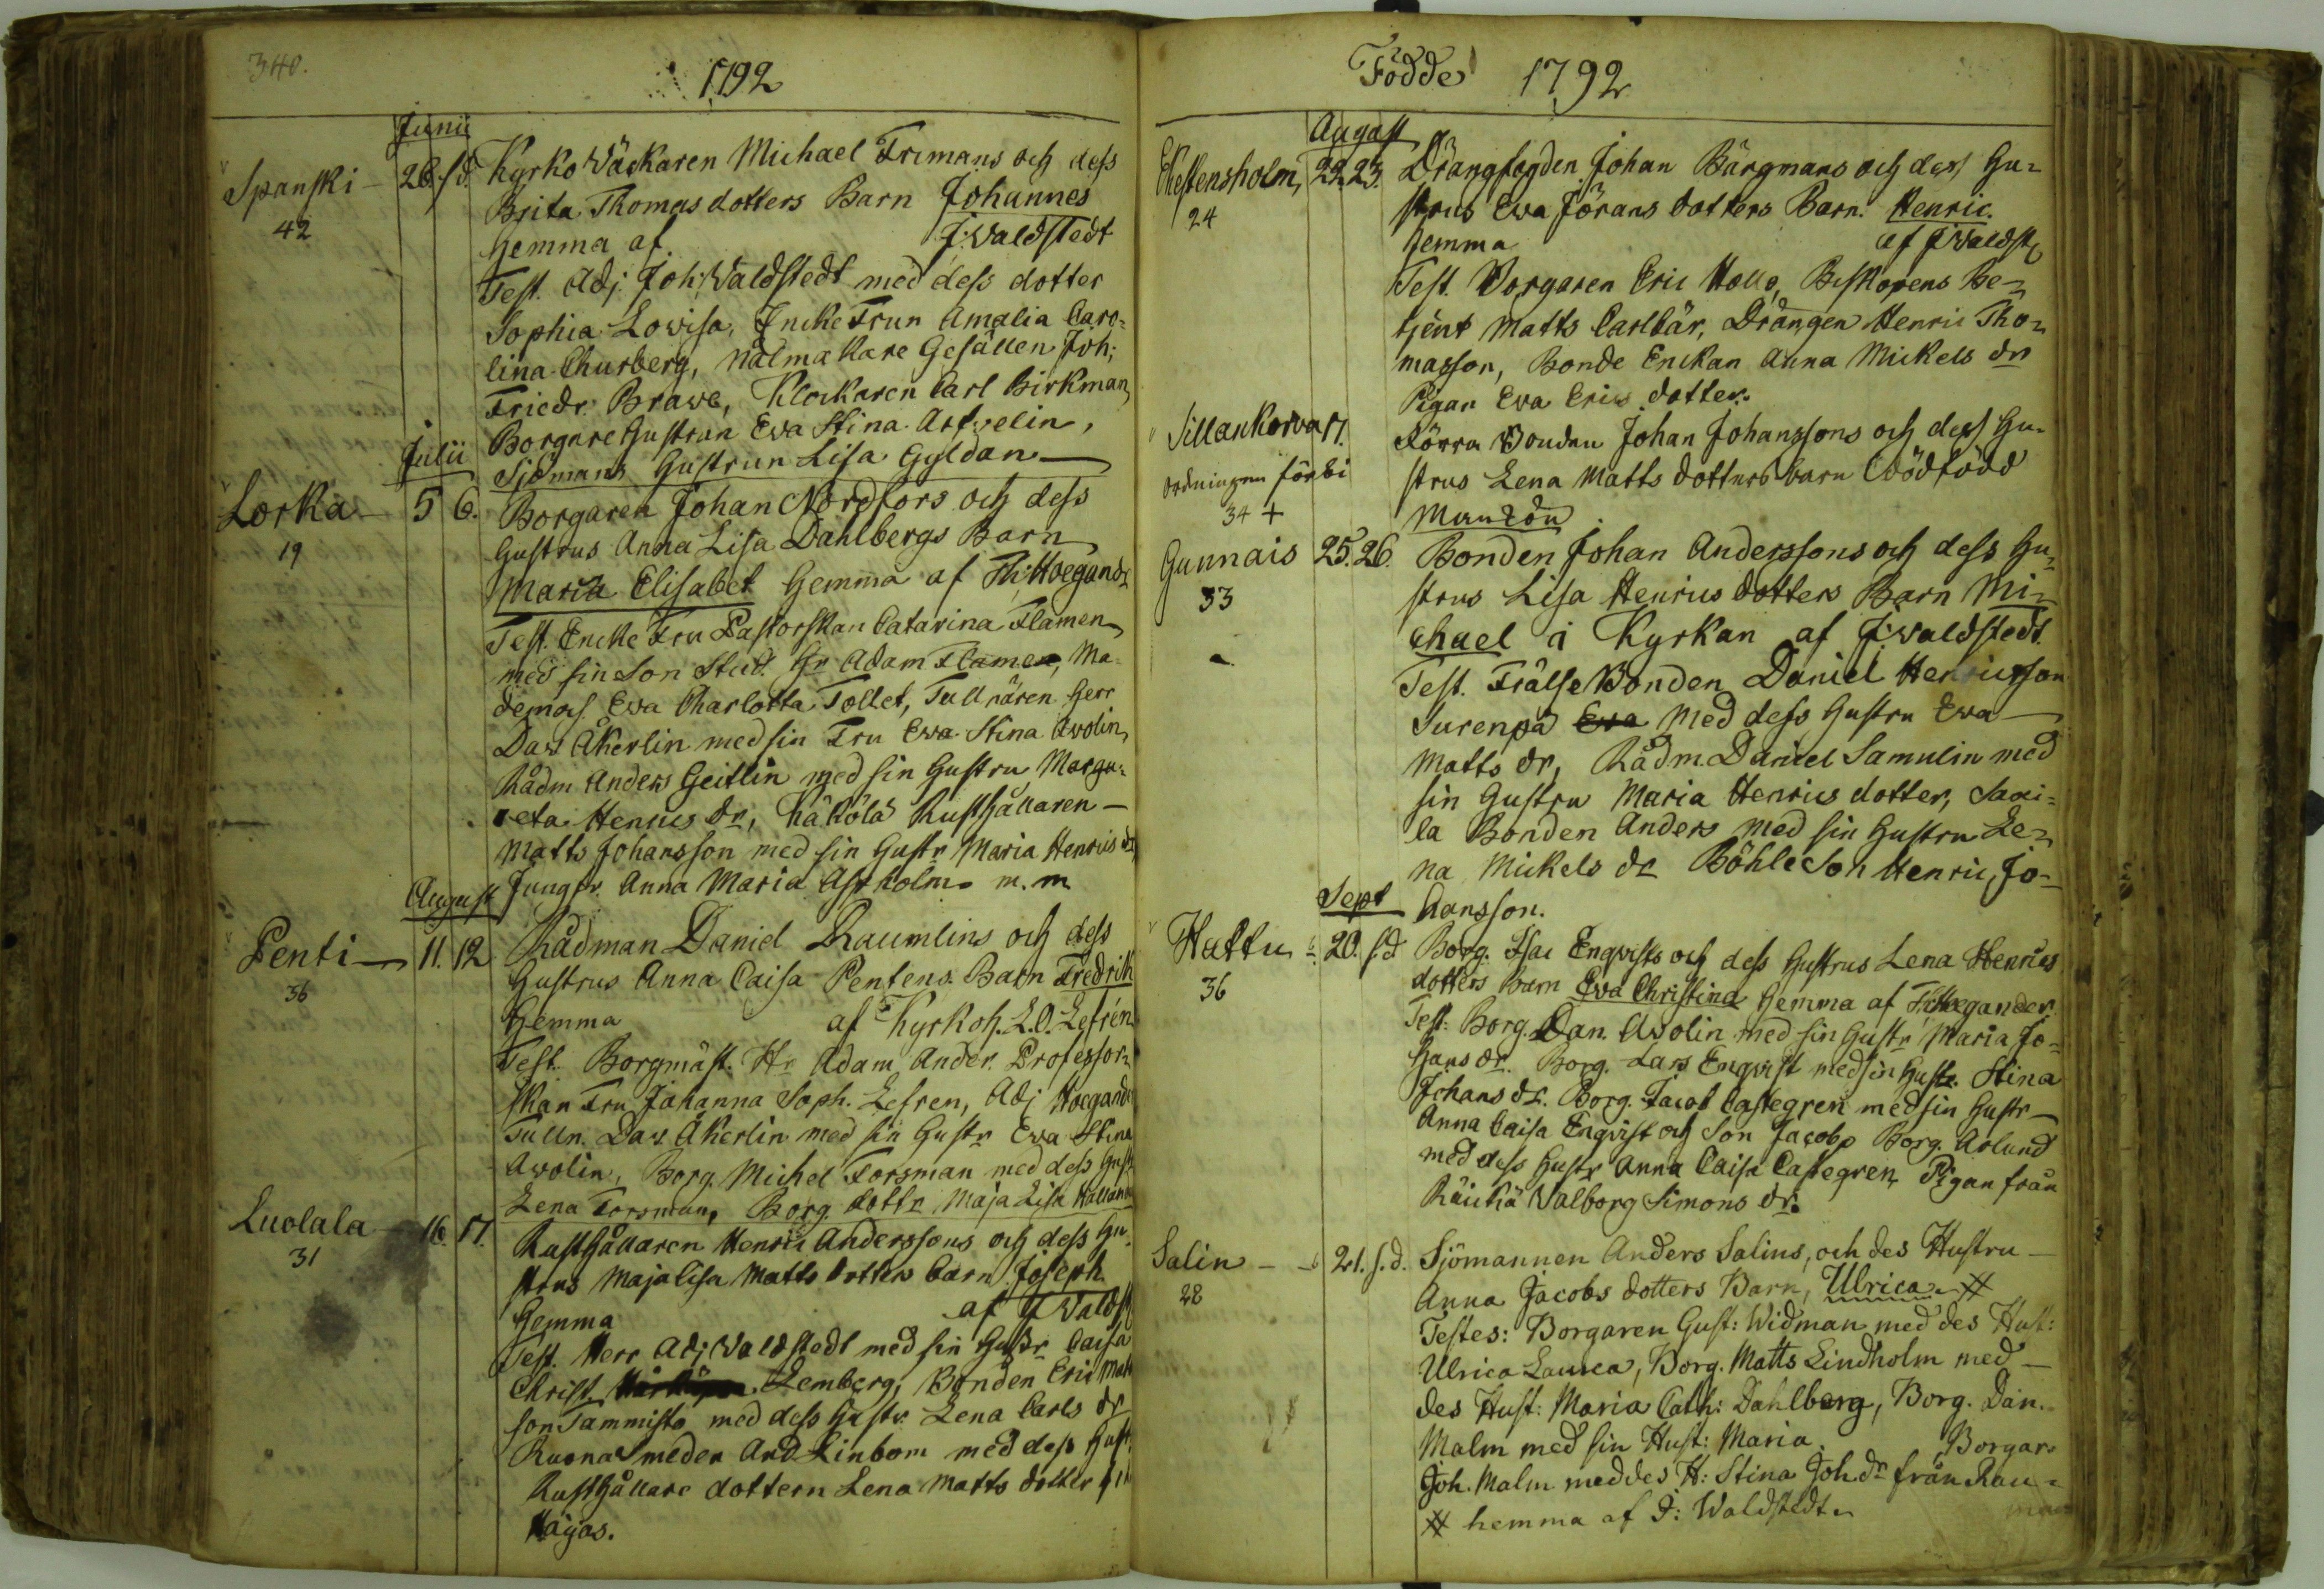 340.
1792
Junii
Spanski – 26. s.d. Kyrko Väckaren Michael Frimans och dess
42
Brita Thomas dotters Barn Johannes
hemma af J. Waldstedt
Test. Adj. Joh. Waldstedt med dess dotter
Sophia Lovisa, Encke Frun Amalia Caro-
lina Churberg, Nålmakare Gesällen Joh:
Friedr. Brawe, Klockaren Carl Birkman,
Borgare hustrun Eva Stina Arfvelin,
Sjömans hustrun Lisa Gyldan
Julii
Lorka – 5 6. Borgaren Johan Nordfors och dess
19
hustrus Anna Lisa Dahlbergs Barn
Maria Elisabet hemma af Hoegand
Test. Encke Fru Pastorskan Catarina Flamen
med sin Son Stud. Hr Adam Flamen, Ma-
demois. Eva Charlotta Tollet, Tullnären Herr
Dav. Åkerlin med sin Fru Eva Stina Avolin,
Rådm Anders Geitlin med sin hustru Marga-
reta Henrics dr, Rusthållaren –
Matts Johansson med sin hustr Maria Henrics dr
Jungfr. Anna Maria m. m
August
Penti – 11. 12 Rådman Daniel Raumlins och dess
36
hustrus Anna Caisa Pentens Barn Fredrik
hemma af Kyrkoh. L. O. Lefrén
Test. Borgmäst. Hr Adam Ander. Professor-
skan Fru Johanna Soph. Lefren, Adj Hoegand
Tulln. Dav. Åkerlin med sin hustr Eva Stina
Avolin, Borg. Michel Forsman med dess hust
Lena Forsman, Borg. dottr Maja Lisa
Luolala – 16. 17. Rusthållaren Henric Anderssons och dess hu-
31
strus Maja Lisa Matts dotters barn Joseph
hemma af J Waldst
Test. Herr Adj Waldstedt med sin hustr Caisa
Christ. Lemberg, Bonden Eric Mats
son Tammisto med dess hustr. Lena Carls dr
Ruona Smeden And Linbom med dess hust
Rusthållare dottern Lena Matts dotter
Födde 1792
August
22. 23. Drängfogden Johan Bärgmans och dess hu-
24
strus Eva Jörans dotters Barn. Henric.
hemma af J Waldst
Test. Borgaren Eric Betskarens Be-
tjent Matts Carlbär, Drängen Henric Tho-
masson, Bonde Enckan Anna Mickels dr
Pigan Eva Erics dotter.
Sillankorva 17. Bonden Johan Johanssons och dess hu-
ordningen förbi
strus Lena Matts dotters barn Dödfödd
34 +
Gunnais 25. 26. Bonden Johan Anderssons och dess hu-
33
strus Lisa Henrics dotters Barn Mi-
chael i Kyrkan af J Waldstedt.
Test. Frälse Bonden Daniel Henricsson
Surenpä Eva med dess hustru Eva –
Matts dr, Rådm. Daniel Samulin med
sin hustru Maria Henrics dotter,
la Bonden Anders med sin hustru Le-
na Mickels dr Böhle Son Henric Jo-
hansson.
Sept
Hattu – 20. s.d Borg. Isac Enqvists och dess hustrus Lena Henrics
36
dotters Barn Eva Christina hemma af Hoegander.
Test: Borg. Dan. Avolin med sin hustr Maria Jo-
hans dr. Borg. Lars Enqvist med sin hustr. Stina
Johans dr. Borg. Jacob Castegren med sin hustr –
Anna Caisa Enqvist och Son Jacob, Borg. Aolund
med dess hustr Anna Caisa Castegren, Pigan från
Valborg Simons dr.
Salin – 21. s.d. Sjömannen Anders Salins, och des Hustru –
28
Anna Jacobs dotters Barn, Ulrica #
Testes: Borgaren Gust: Widman med des Hust:
Ulrica Laurea, Borg. Matts Lindholm med –
des Hust: Maria Cath: Dahlberg, Borg. Dan.
Malm med sin Hust: Maria. Borgar.
Joh. Malm med des H: Stina Joh. dr från Rau-
# hemma af J: Waldstedt. mo